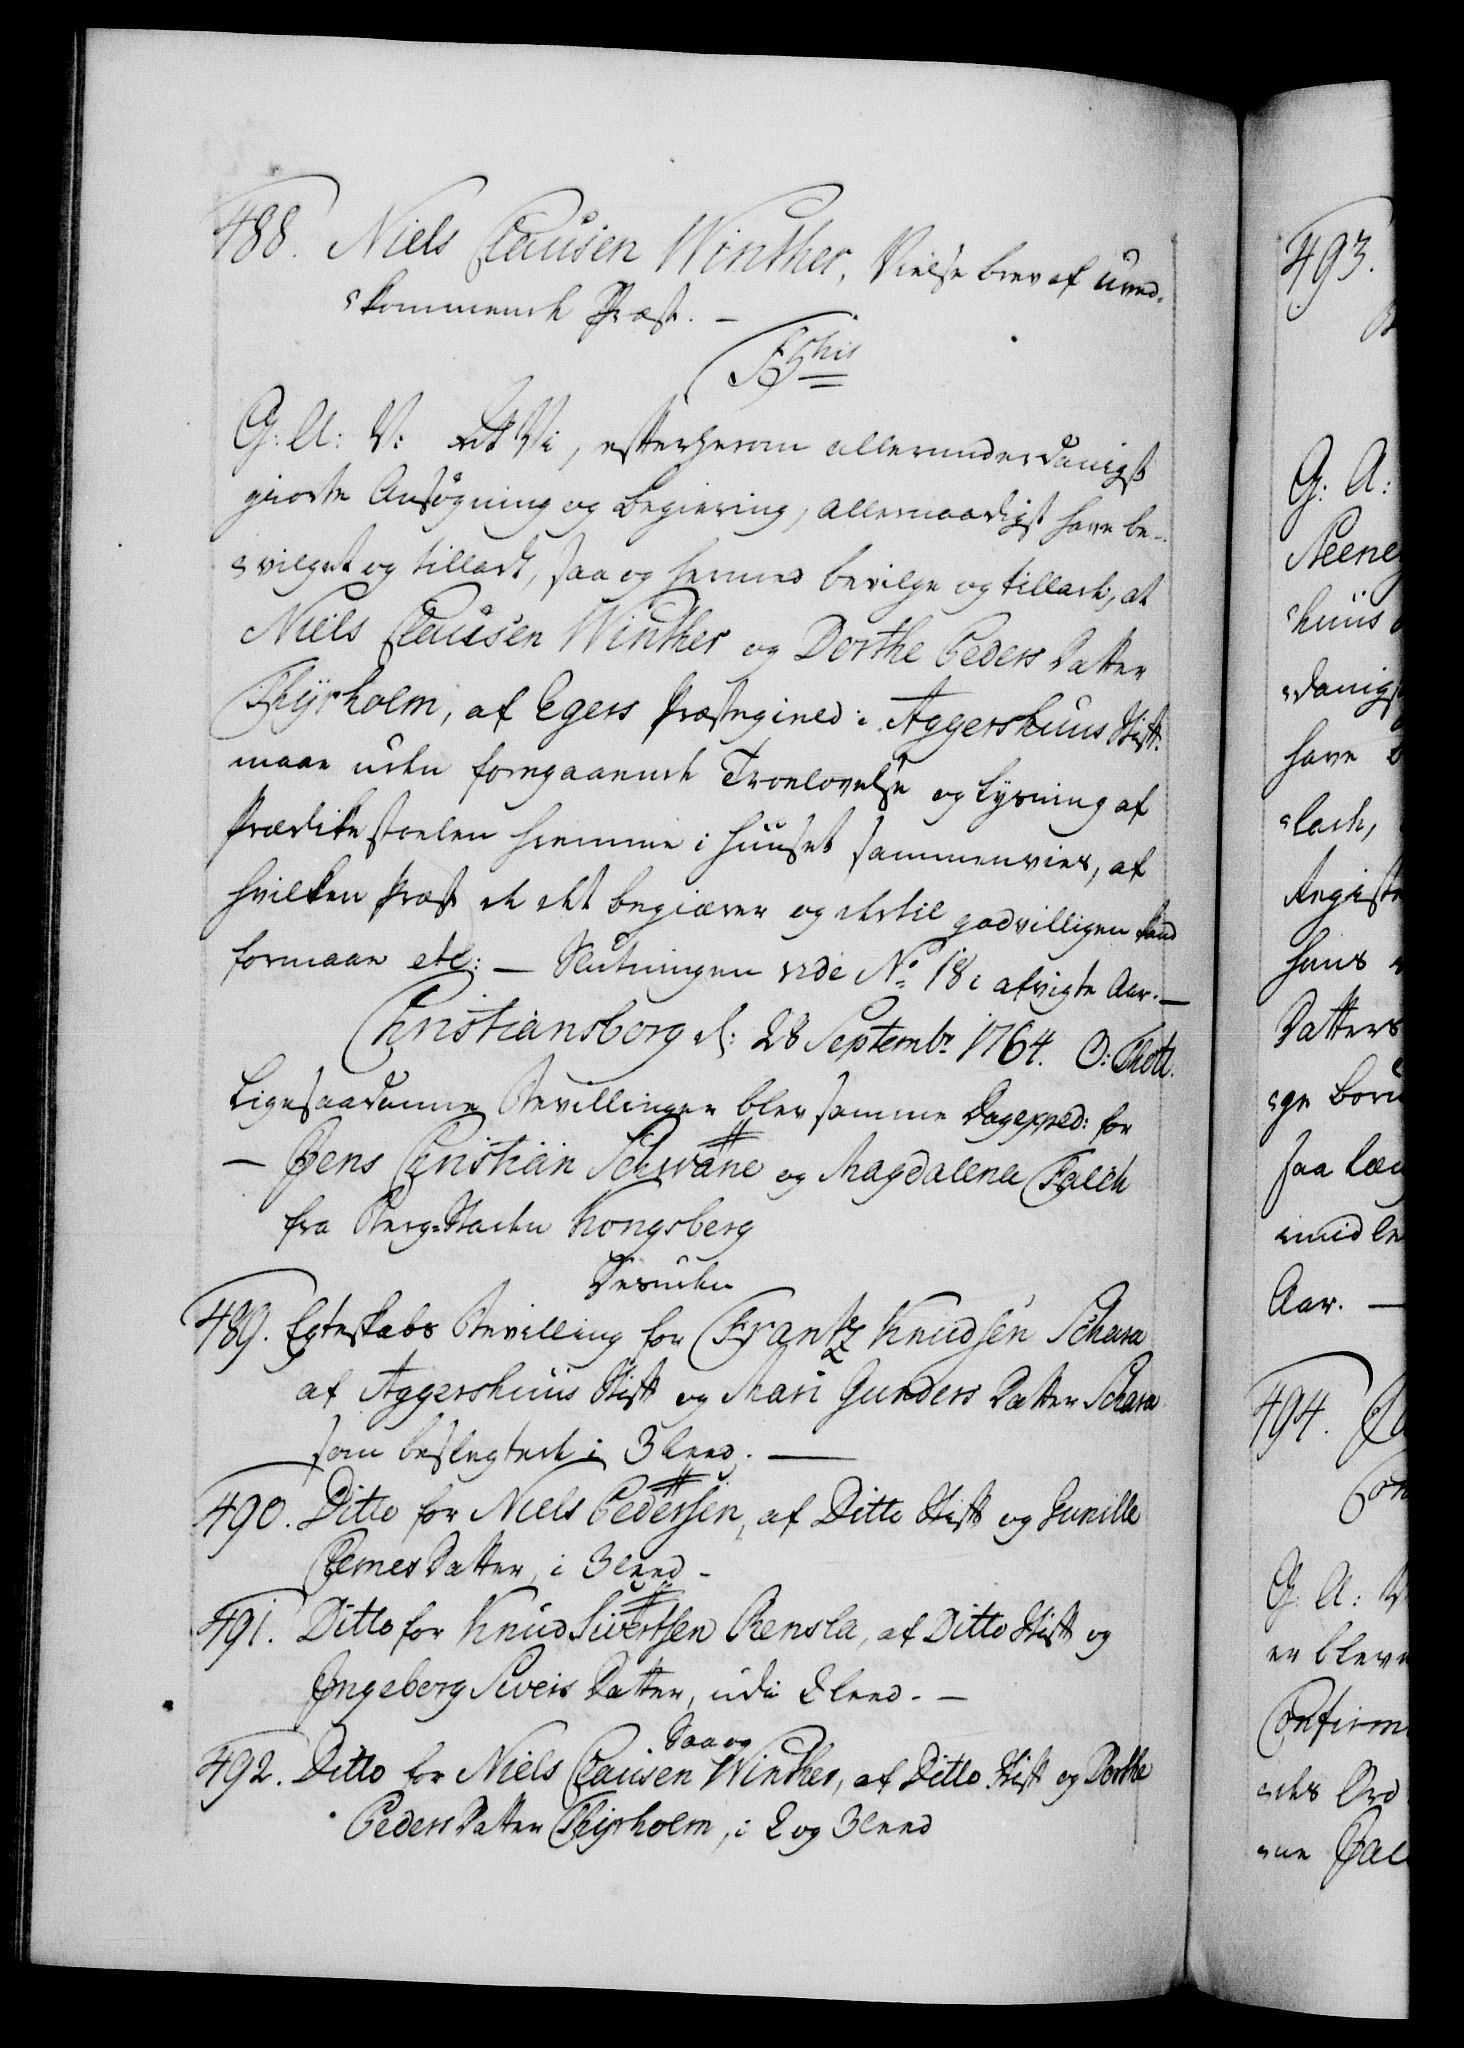 488. Niels Clausen Winther, Vielse brev af uved-
kommende Præst. —
F5this
G: A: V: At Vi, efter herom allerunderdanigst
giorte Ansøgning og begiering, allernaadigst have be-
vilget og tilladt, saa og hermed bevilge og tillade, at
Niels Clausen Winther og Dorthe Peders Datter
Thyrholm, af Egers Præstegield i Aggershuus Stift.
maae uden foregaaende Troelovelse og Lysning af
Prædikestoelen hiemme i Huuset sammenvies, af
hvilken Præst de det begiærer og dertil godvilligen kand
formaae etc: — Slutningen vide No. 18 i afvigte Aar. —
Christiansborg d: 28 Septembr. 1764. O: Thott.
Ligesaadanne Bevillinger blev samme Dag exped: for
— Jens Christian Schwane og Magdalena Falch
fra Berg-Staden Kongsberg
Desuden
489. Egteskabs Bevilling for Frantz Knudsen Schara
af Aggershuus Stift og Mari Gunders Datter Schara
som beslegtede i 3 Leed. —
490. Ditto for Niels Pedersen, af Ditto Stift og Gunille
Clemes Datter, i 3 Leed -
491. Ditto for Knud Sivertsen Rensla, af Ditto Stift og
Ingeborg Siveis Datter, udi 2 Leed. —
Saa og
492. Ditto for Niels Clausen Winther, af Ditto Stift og Dorthe
Peders Datter Thyrholm, i 2 og 3 Leed
493.
G: A:
huus
danigst
have
lade,
hans
Datters
saa
Aar. —
494.
G: A: V
er blev
Confirm